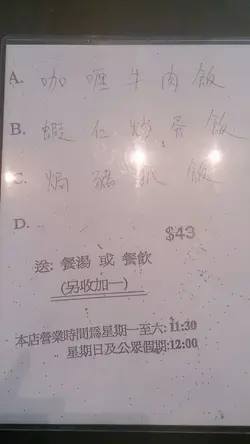 A. 咖喱牛肉飯
B. 蝦仁炒蛋飯
C. 焗豬扒飯
D.
$43
送: 餐湯 或 餐飲
(另收加一)
本店營業時間爲星期一至六: 11:30
星期日及公眾假期:12:00